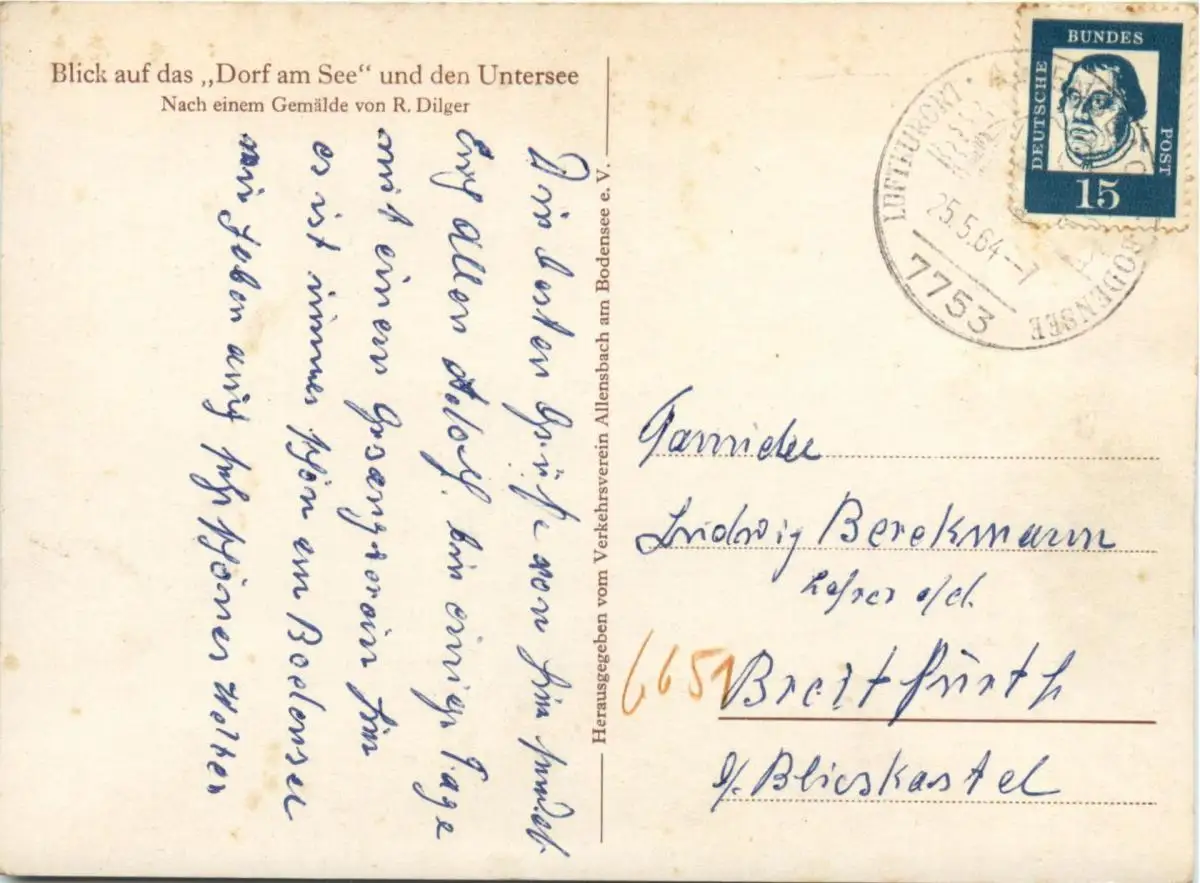 Blick auf das „Dorf am See“ und den Untersee
Nach einem Gemälde von R. Dilger
Die besten Grüße von hier sendet
Euch allen Adolf. bin einige Tage
mit einem Gesangverein hier
es ist immer schön am Bodensee
wir haben auch sehr schönes Wetter
Herausgegeben vom Verkehrsverein Allensbach am Bodensee e. V.
DEUTSCHE
BUNDES
POST
15
LUFTKURORT
BODENSEE
25.5.64--7
7753
Familie
Ludwig Berckmann
Lehrer a/d.
6651 Breitfurth
b/. Blieskastel